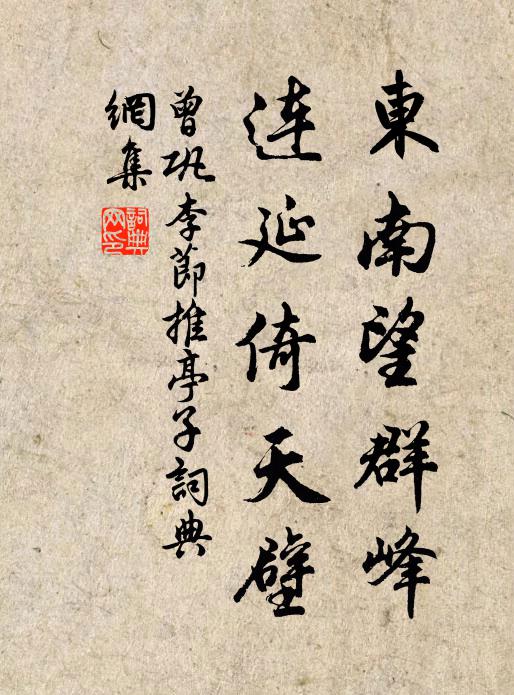 東南望群峰
連延倚天壁
曾巩李節推亭子詞典
網集
詞典
网印